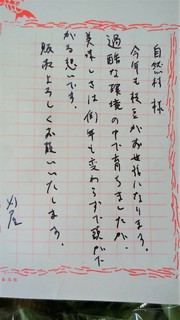 自然村 様
今年も枝豆がお世話になります。
過酷な環境の中で育ちましたが、
美味しさは例年と変わらずで頭が下
がる想いです。
販売よろしくお願いいたします。